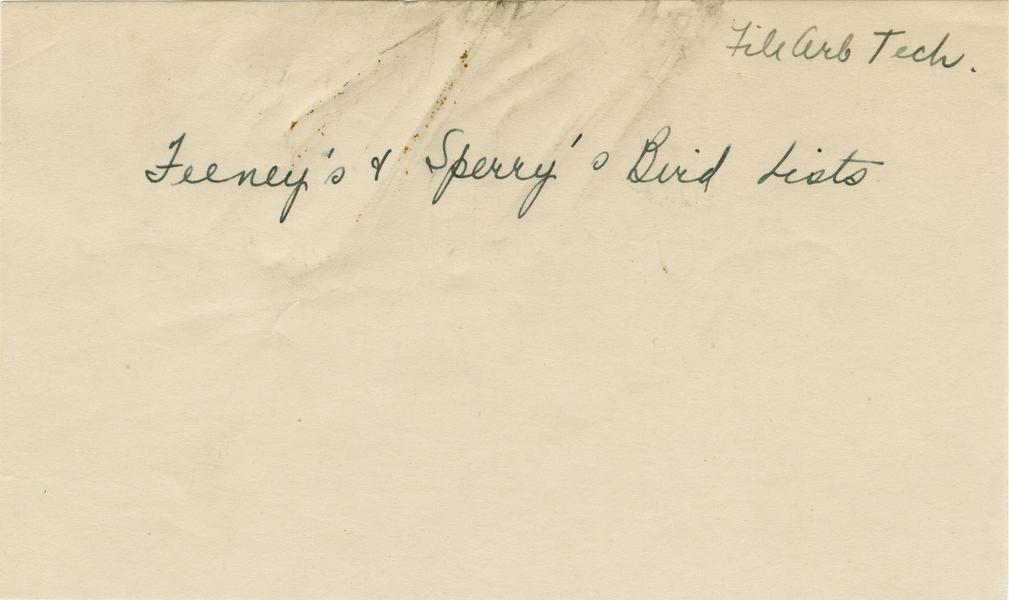 File Arb Tech.
Feeney's & Sperry's Bird Lists